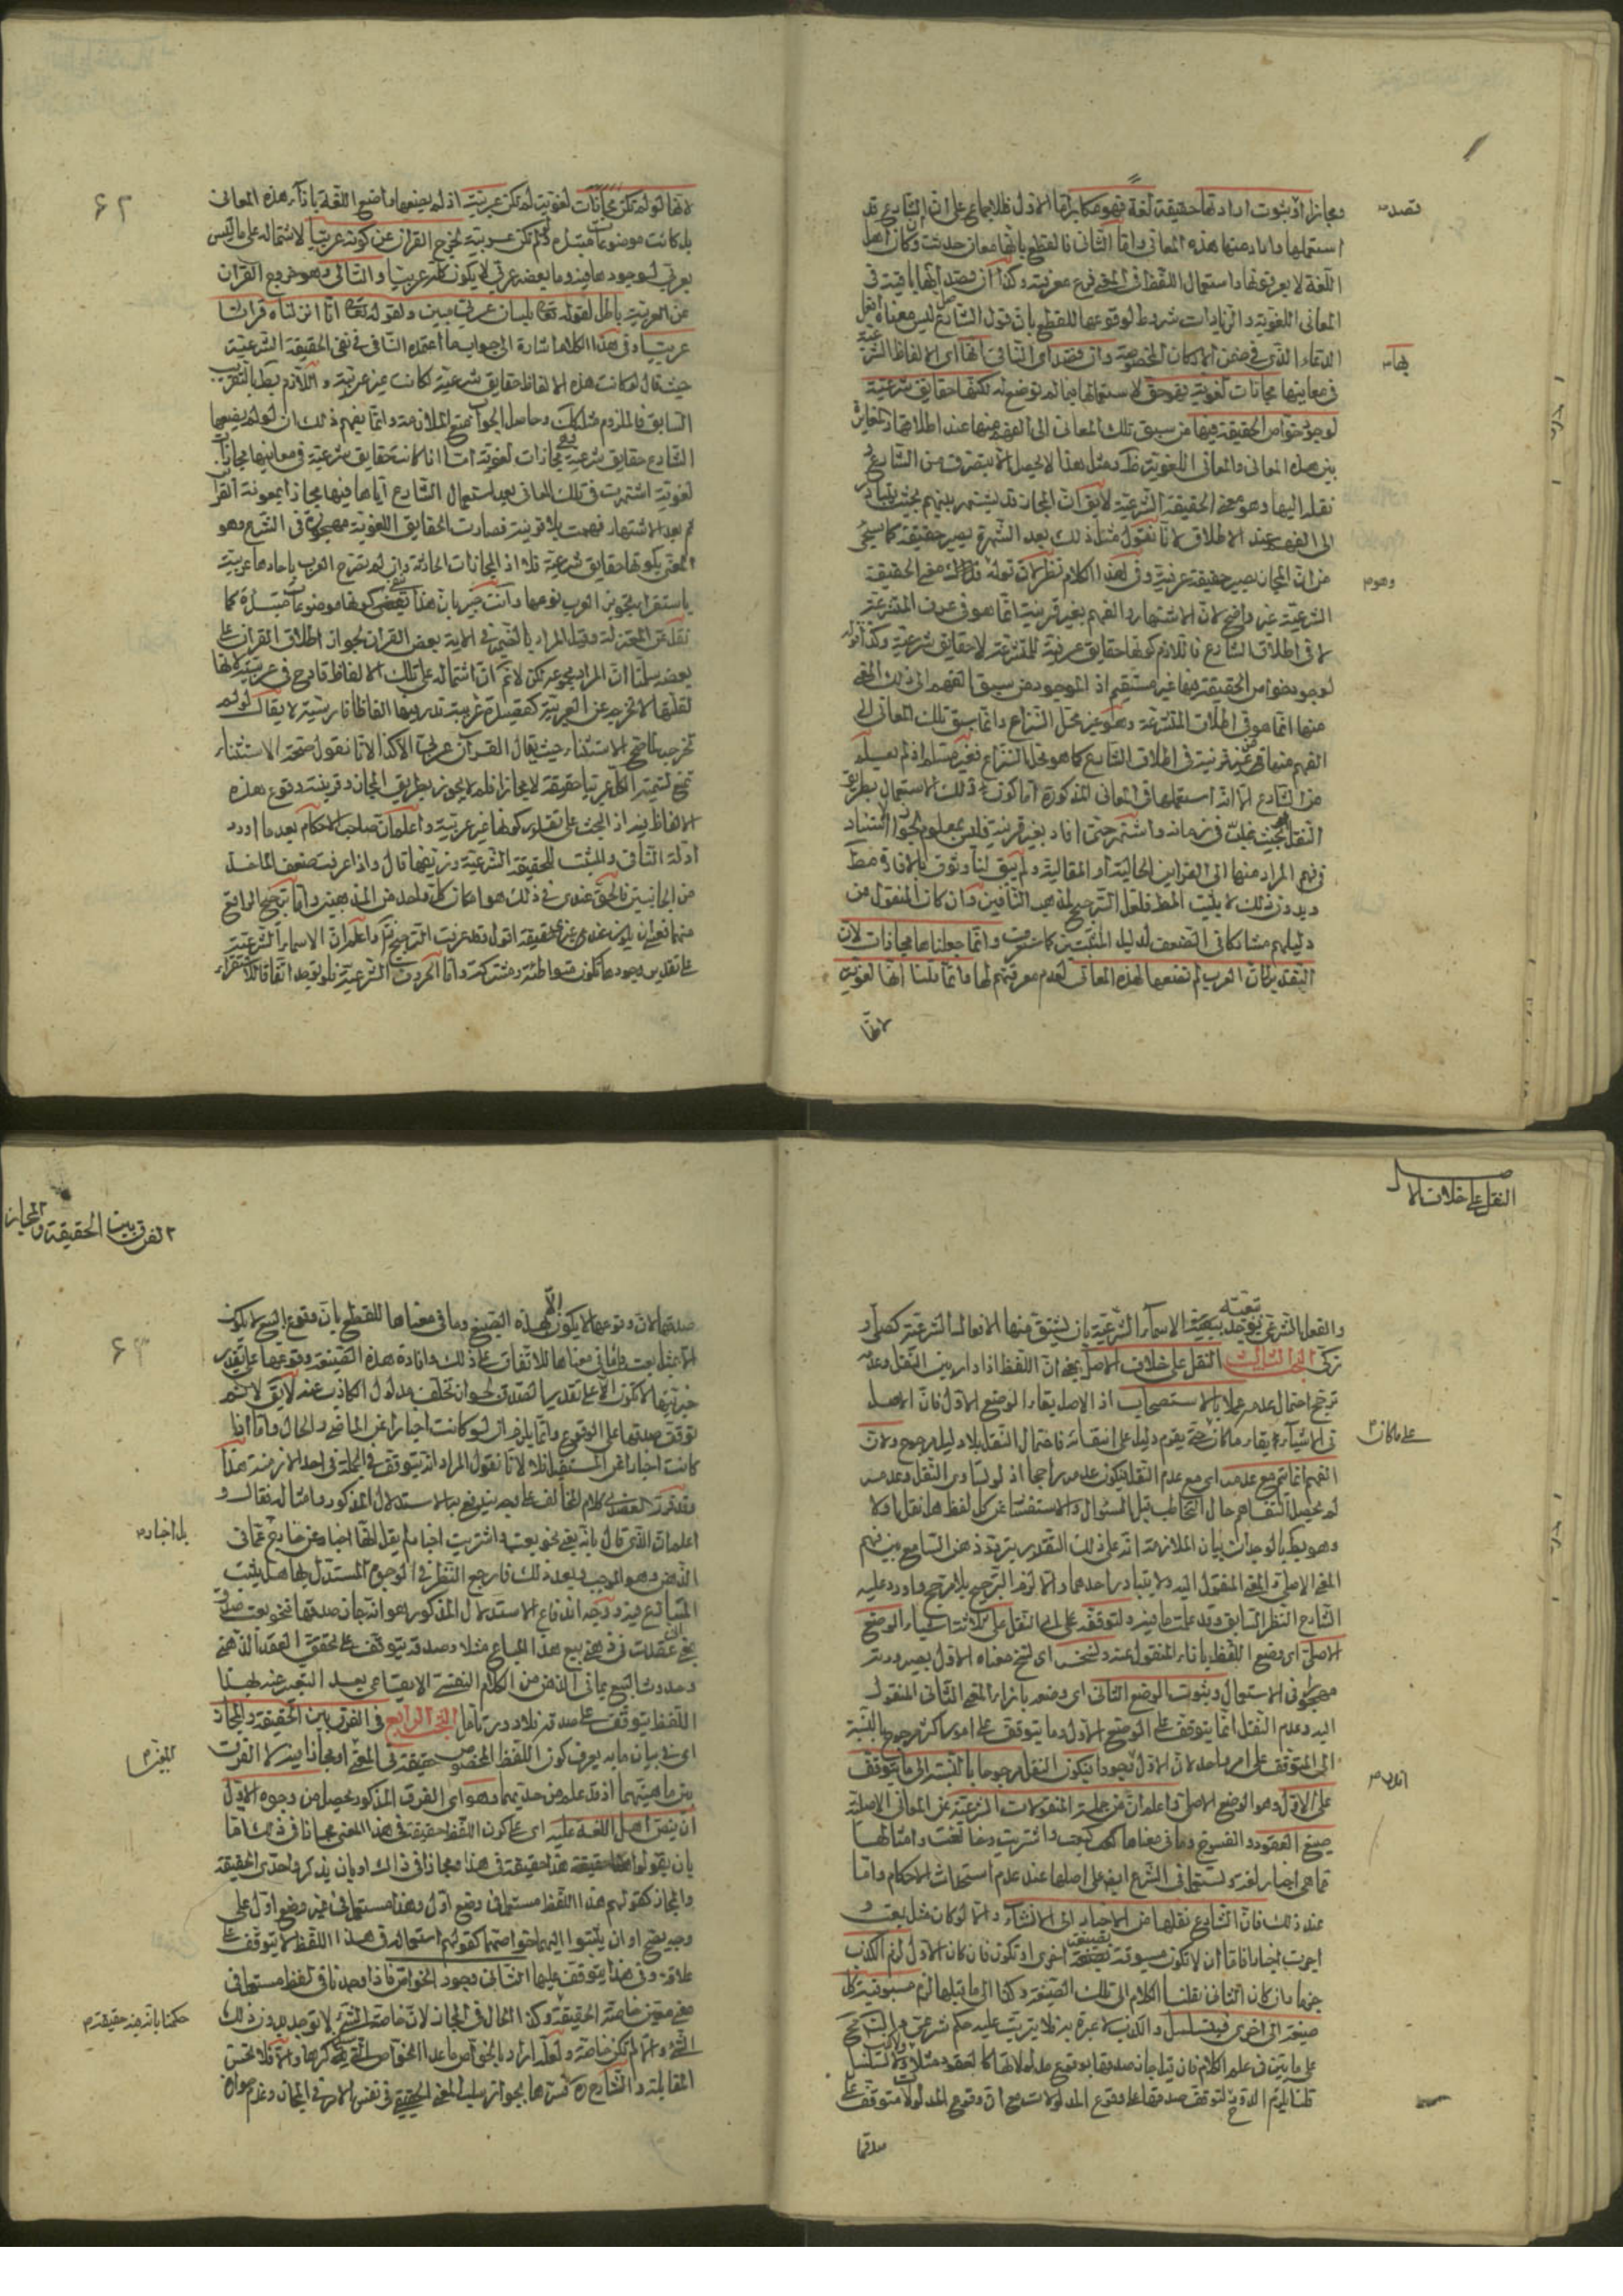 قصده
ومجازا اذ ثبوت ارادتها حقيقة لغة فهو مكابرة اما الاول فللاجماع على ان الشارع قد
استعملها واراد منها هذه المعاني واما الثاني فالقطع بانها معان حدثت وكان اهل
اللغة لا يعرفونها واستعمال اللفظ في المعنى فرع معرفته وكذا ان قصد انها باقية في
المعاني اللغوية والزيادات شروط لوقوعها للقطع بان قول الشارع ليس معناه افعل
الدعاء الذي في ضمن الاركان المخصوصة وان قصد اي الثاني انها اي الالفاظ الشرعية
بها
في معانيها مجازات لغوية فهو حق لاستعمالها فيما لم توضع له لكنها حقايق شرعية
لوجود خواص الحقيقة فيها من سبق تلك المعاني الى الفهم منها عند اطلاقها
بين هذه المعاني والمعاني اللغوية مثل هذا لا يحصل الا بتصرف من الشارع
نقله اليها وهو معنى الحقيقة الشرعية لا يق ان المجاز قد يشتهر بينهم بحيث يتبادر
الى الفهم عند الاطلاق لانا نقول مثل ذلك بعد الشهرة يصير حقيقة كما سيجئ
من ان المجاز يصير حقيقة عرفية وفي هذا الكلام نظر لان قوله معنى الحقيقة
وهو
الشرعية غير واضح لان الاشتهار والفهم بغير قرينة انما هو في عرف المتشرعة
لا في اطلاق الشارع فاللازم كونها حقايق عرفية للمتشرعة لا حقايق شرعية وكذا قوله
لوجود خواص الحقيقة فيها غير مستقيم اذ الموجود من سبق الفهم الى ذلك المعنى
منها انما هو في اطلاق المتشرعة وهو غير محل النزاع وانما سبق تلك المعاني الى
الفهم منها من غير قرينة في اطلاق الشارع كما هو محل النزاع فغير مسلم اذ لم يعلم
من الشارع الا انه استعملها في المعاني المذكورة اما كون ذلك الاستعمال بطريق
النقل بحيث غلب في زمانه واشتهر حتى افاد بغير قرينة فليس بمعلوم لجواز استناد
فهم المراد منها الى القراين الحالية او المقالية ولم يبق لنا وثوق بالافادة مط
وبدون ذلك لا يثبت المط فلعل الترجيح لمذهب النافين وان كان المنقول من
دليلهم مشاركا في الضعف لدليل المثبتين كما ستعرف وانما جعلناها مجازات لان
التقدير ان العرب لم تضعها لهذه المعاني لعدم معرفتهم لها وانما قلنا انها لغوية
لانها
٦٢
لانها لو لم تكن مجازات لغوية لم تكن عربية اذ لم يضعها واضع اللغة بازاء هذه المعاني
بل كانت موضوعات مبتدأة ولو لم تكن عربية لخرج القران عن كونه عربيا لاشتماله على ما ليس
بعربي لوجودها فيه وما بعضه عربي لا يكون كله عربيا والتالي وهو خروج القران
عن العربية باطل لقوله تعالى بلسان عربي مبين ولقوله تعالى انا انزلناه قرانا
عربيا وفي هذا الكلام اشارة الى جواب ما اعتمده النافي في نفي الحقيقة الشرعية
حيث قال لو كانت هذه الالفاظ حقايق شرعية لكانت غير عربية واللازم بط بالتقريب
السابق فالملزوم مثله وحاصل الجواب منع الملازمة وانما يلزم ذلك ان لو لم يضعها
الشارع حقايق شرعية مجازات لغوية
لغوية اشتهرت في تلك المعاني بعد استعمال الشارع اياها فيها مجازا بمعونة القراين
ثم بعد الاشتهار فهمت بلا قرينة فصارت الحقايق اللغوية مهجورة في الشرع وهو
المعنى بكونها حقايق شرعية اذ المجازات الحادثة وان لم يصرح العرب باحادها عربية
باستقراء تجويز العرب نوعها وانت خبير بان هذا كونها موضوعات مبتدأة كما
نقل عن المعتزلة وقيل المراد بالضمير في الاية بعض القران لجواز اطلاق القران على
بعضه سلمنا ان المراد مجموعه لكن لا نم ان اشتماله على تلك الالفاظ قادح في عربيته لانها
لقلتها لا تخرجه عن العربية كقصيدة عربية فيها الفاظ فارسية لا يقال لو لم
تخرجه لما صح الاستثناء حيث يقال القران عربي الا كذا لانا نقول صحة الاستثناء
تمنع تسمية الكل عربيا حقيقة لا مجازا فلم لا يجوز بطريق المجاز وقرينته وقوع هذه
الالفاظ فيه اذ البحث على تقدير كونها غير عربية واعلم ان صاحب الاحكام بعد ما اورد
ادلة النافي والمثبت للحقيقة الشرعية وزيفها قال واذا عرفت ضعف الماخذ
من الجانبين فالحق عندي في ذلك هو امكان كل واحد من المذهبين واما ترجيح الواقع
منهما فعسى ان يكون عند غيري تحقيقه اقول قد عرفت الترجيح واعلم ان الاسماء الشرعية
على تقدير وجودها تكون متواطئة ومشتركة واما الحروف الشرعية فلم توجد اتفاقا للاستقراء
النقل على خلاف الاصل
والفعل الشرعي يوجد بتبعية الاسماء الشرعية بان يشتق منها الافعال الشرعية كصلى و
زكى البحث الثالث النقل على خلاف الاصل بمعنى ان اللفظ اذا دار بين النقل وعدمه
ترجح احتمال عدمه عملا بالاستصحاب اذ الاصل بقاء الوضع الاول فان الاصل
على ما كان
في الاشياء بقاء ما كان حتى يقوم دليل على انتفائه فاحتمال النقل بلا دليل مرجوح ولان
الفهم انما يتم مع عدمه اي مع عدم النقل فيكون عدمه راجحا اذ لو تساوى النقل وعدمه
لم يحصل التفاهم حال التخاطب قبل السؤال والاستفسار عن كل لفظ هل نقل او لا
وهو بط بالوجدان بيان الملازمة انه على ذلك التقدير يتردد ذهن السامع بين فهم
المعنى الاصلي والمعنى المنقول اليه ولا يتبادر احدهما والا لزم الترجيح بلا مرجح واورد عليه
الشارح النظر السابق وقد علمت ما فيه ولتوقفه على اي النقل على ثلاثة اشياء الوضع
الاصلي اي وضع اللفظ بازاء المنقول عنه ونسخه اي نسخ معناه الاول بصيرورته
مهجورا في الاستعمال وثبوت الوضع الثاني اي وضعه بازاء المعنى الثاني المنقول
اليه وعدم النقل انما يتوقف على الوضع الاول وما يتوقف على امور اكثر مرجوح بالنسبة
الى المتوقف على امر واحد لان الاول وجودا فيكون النقل مرجوحا بالنسبة الى ما يتوقف
على الاول وهو الوضع الاصلي واعلم ان من جملة المنقولات الشرعية عن المعاني الاصلية
صيغ العقود والفسوخ وما في معناها كبعت واشتريت وفسخت وامثالها
فما هي اخبار لغة وتستعمل في الشرع ايضا على اصلها عند عدم استحداث الاحكام واما
عند ذلك فان الشارع نقلها من الاخبار الى الانشاء والا لو كان مثل بعت و
اجرت اخبارا فاما ان لا تكون مسبوقة بصيغة اخرى او تكون فان كان الاول لزم الكذب
جزما وان كان الثاني نقلنا الكلام الى تلك الصيغة وكذا الى ما قبلها لزم مسبوقية كل
صيغة الى اخرى فيتسلسل والكذب لا عبرة به فلا يترتب عليه حكم شرعي
على ما يتبين في علم الكلام فان قيل جاز صدقها بوقوع مدلولاتها كالعقود مثلا ولا تسلسل
قلنا يلزم الدور لتوقف صدقها على وقوع المدلولات مع ان وقوع المدلولات متوقف على
صدقها
الفرق بين الحقيقة والمجاز
٦٣
صدقها لان وقوعها لا يكون الا بهذه الصيغ وما في معناها للقطع بان وقوع البيع لا يكون
الا بمثل بعت وما في معناها للاتفاق على ذلك وافادة هذه الصيغة وقوعها على تقدير
خبريتها لا يكون الا على تقدير الصدق لجواز تخلف مدلول الكاذب عنه لا يق لا نم
توقف صدقها على الوقوع وانما يلزم ان لو كانت اخبارا عن الماضي والحال واما اذا
كانت اخبارا عن المستقبل فلا لانا نقول المراد انه يتوقف في الجملة في احد الازمنة هذا
وقد قرر العضدي كلام المخالف على وجه يندفع به الاستدلال المذكور وامثاله فقال و
بل اخبار
اعلم ان الذي قال بانه بقي نحو بعت واشتريت اخبارا لم يقل انها اخبار عن خارج عما في
الذهن وهو الموجب وبعد ذلك فارجع النظر في الوجوه المستدل بها هل يثبت
المتنازع فيه وتوجيه اندفاع الاستدلال المذكور هو انه جاز صدقها فنحو بعت
بمعنى عقدت في ذهني بيع هذا المتاع مثلا وصدقه يتوقف على تحقق العقد الذهني
وحدوث البيع بما في الذهن من الكلام النفسي الايقاعي بعد التعبير عنه بهذا
اللفظ يتوقف على صدقه فلا دور تامل البحث الرابع في الفرق بين الحقيقة والمجاز
اي في بيان ما به يعرف كون اللفظ المخصوص حقيقة في المعنى او مجازا فيه لا الفرق
بين ماهيتهما اذ قد علم من حديهما وهو اي الفرق المذكور يحصل من وجوه الاول
ان ينص اهل اللغة عليه اي على كون اللفظ حقيقة في هذا المعنى مجازا في ذلك اما
بان يقولوا هذا حقيقة في هذا ومجاز في ذاك او بان يذكروا حدي الحقيقة
والمجاز كقولهم هذا اللفظ مستعمل في وضع اول وهذا مستعمل في غير وضع اول على
وجه يصح او ان يثبتوا اليهما خواصهما كقولهم استعماله في هذا اللفظ لا يتوقف على
علاقة وفي هذا يتوقف عليها الثاني وجود الخواص فاذا وجدنا في لفظ مستعمل في
حكمنا بانه فيه حقيقة
معنى معين خاصة الحقيقة وكذا الحال في المجاز لان خاصة الشئ لا توجد بدون ذلك
الشئ والا لم تكن خاصة ولعله اراد بالخواص ما عدا الخواص التي ذكرها والا فلا تحسن
المقابلة والشارح ره فسرها بجواز سلب المعنى الحقيقي في نفس الامر في المجاز وعدم جوازه